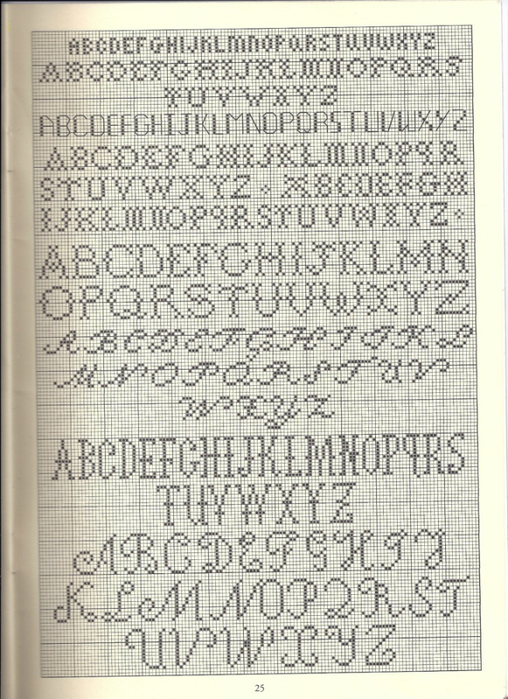 ABCDEFGHIJKLMNOPQRSTUVWXYZ
ABCDEFGHIJKLMNOPQRS
TUVWXYZ
ABCDEFGHIJKLMNOPQRSTUVWXYZ
ABCDEFGHIJKLMNOPQR
STUVWXYZ ABCDEFGH
IJKLMNOPQRSTUVWXYZ
ABCDEFGHIJKLMN
OPQRSTUVWXYZ
ABCDEFGHIJKL
MNOPQRSTUV
WXYZ
ABCDEFGHIJKLMNOPQRS
TUVWXYZ
ABCDEFGHIJ
KLMNOPQRST
UVWXYZ
25